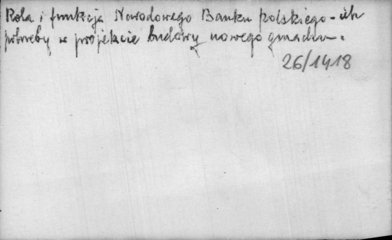 Rola i funkcja Narodowego Banku Polskiego - ich
potrzeby w projekcie budowy nowego gmachu.
26/1418